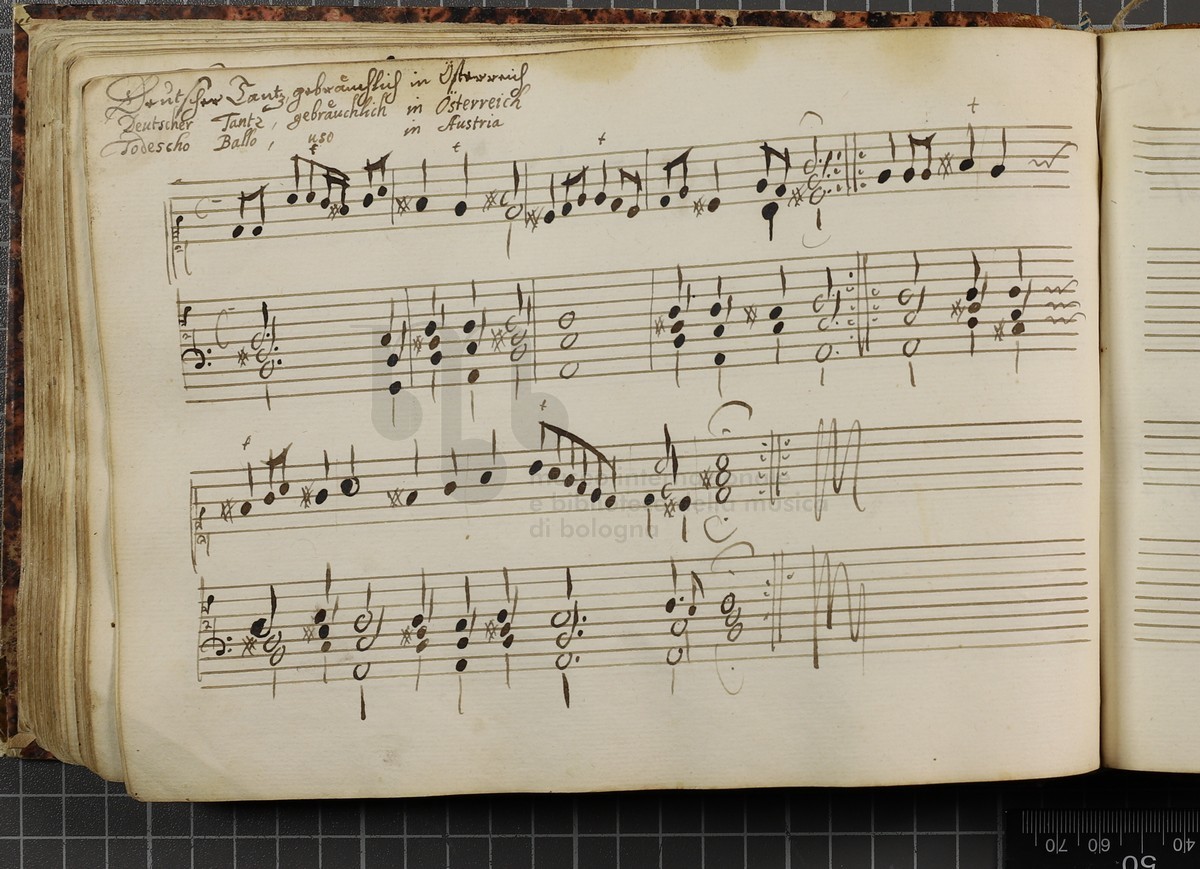 Deutscher Tantz, gebräuchlich in Österreich
Deutscher Tantz, gebräuchlich in Österreich
Todescho Ballo, uso in Austria
museo internazionale
e biblioteca della musica
di bologna
70 60 50 40